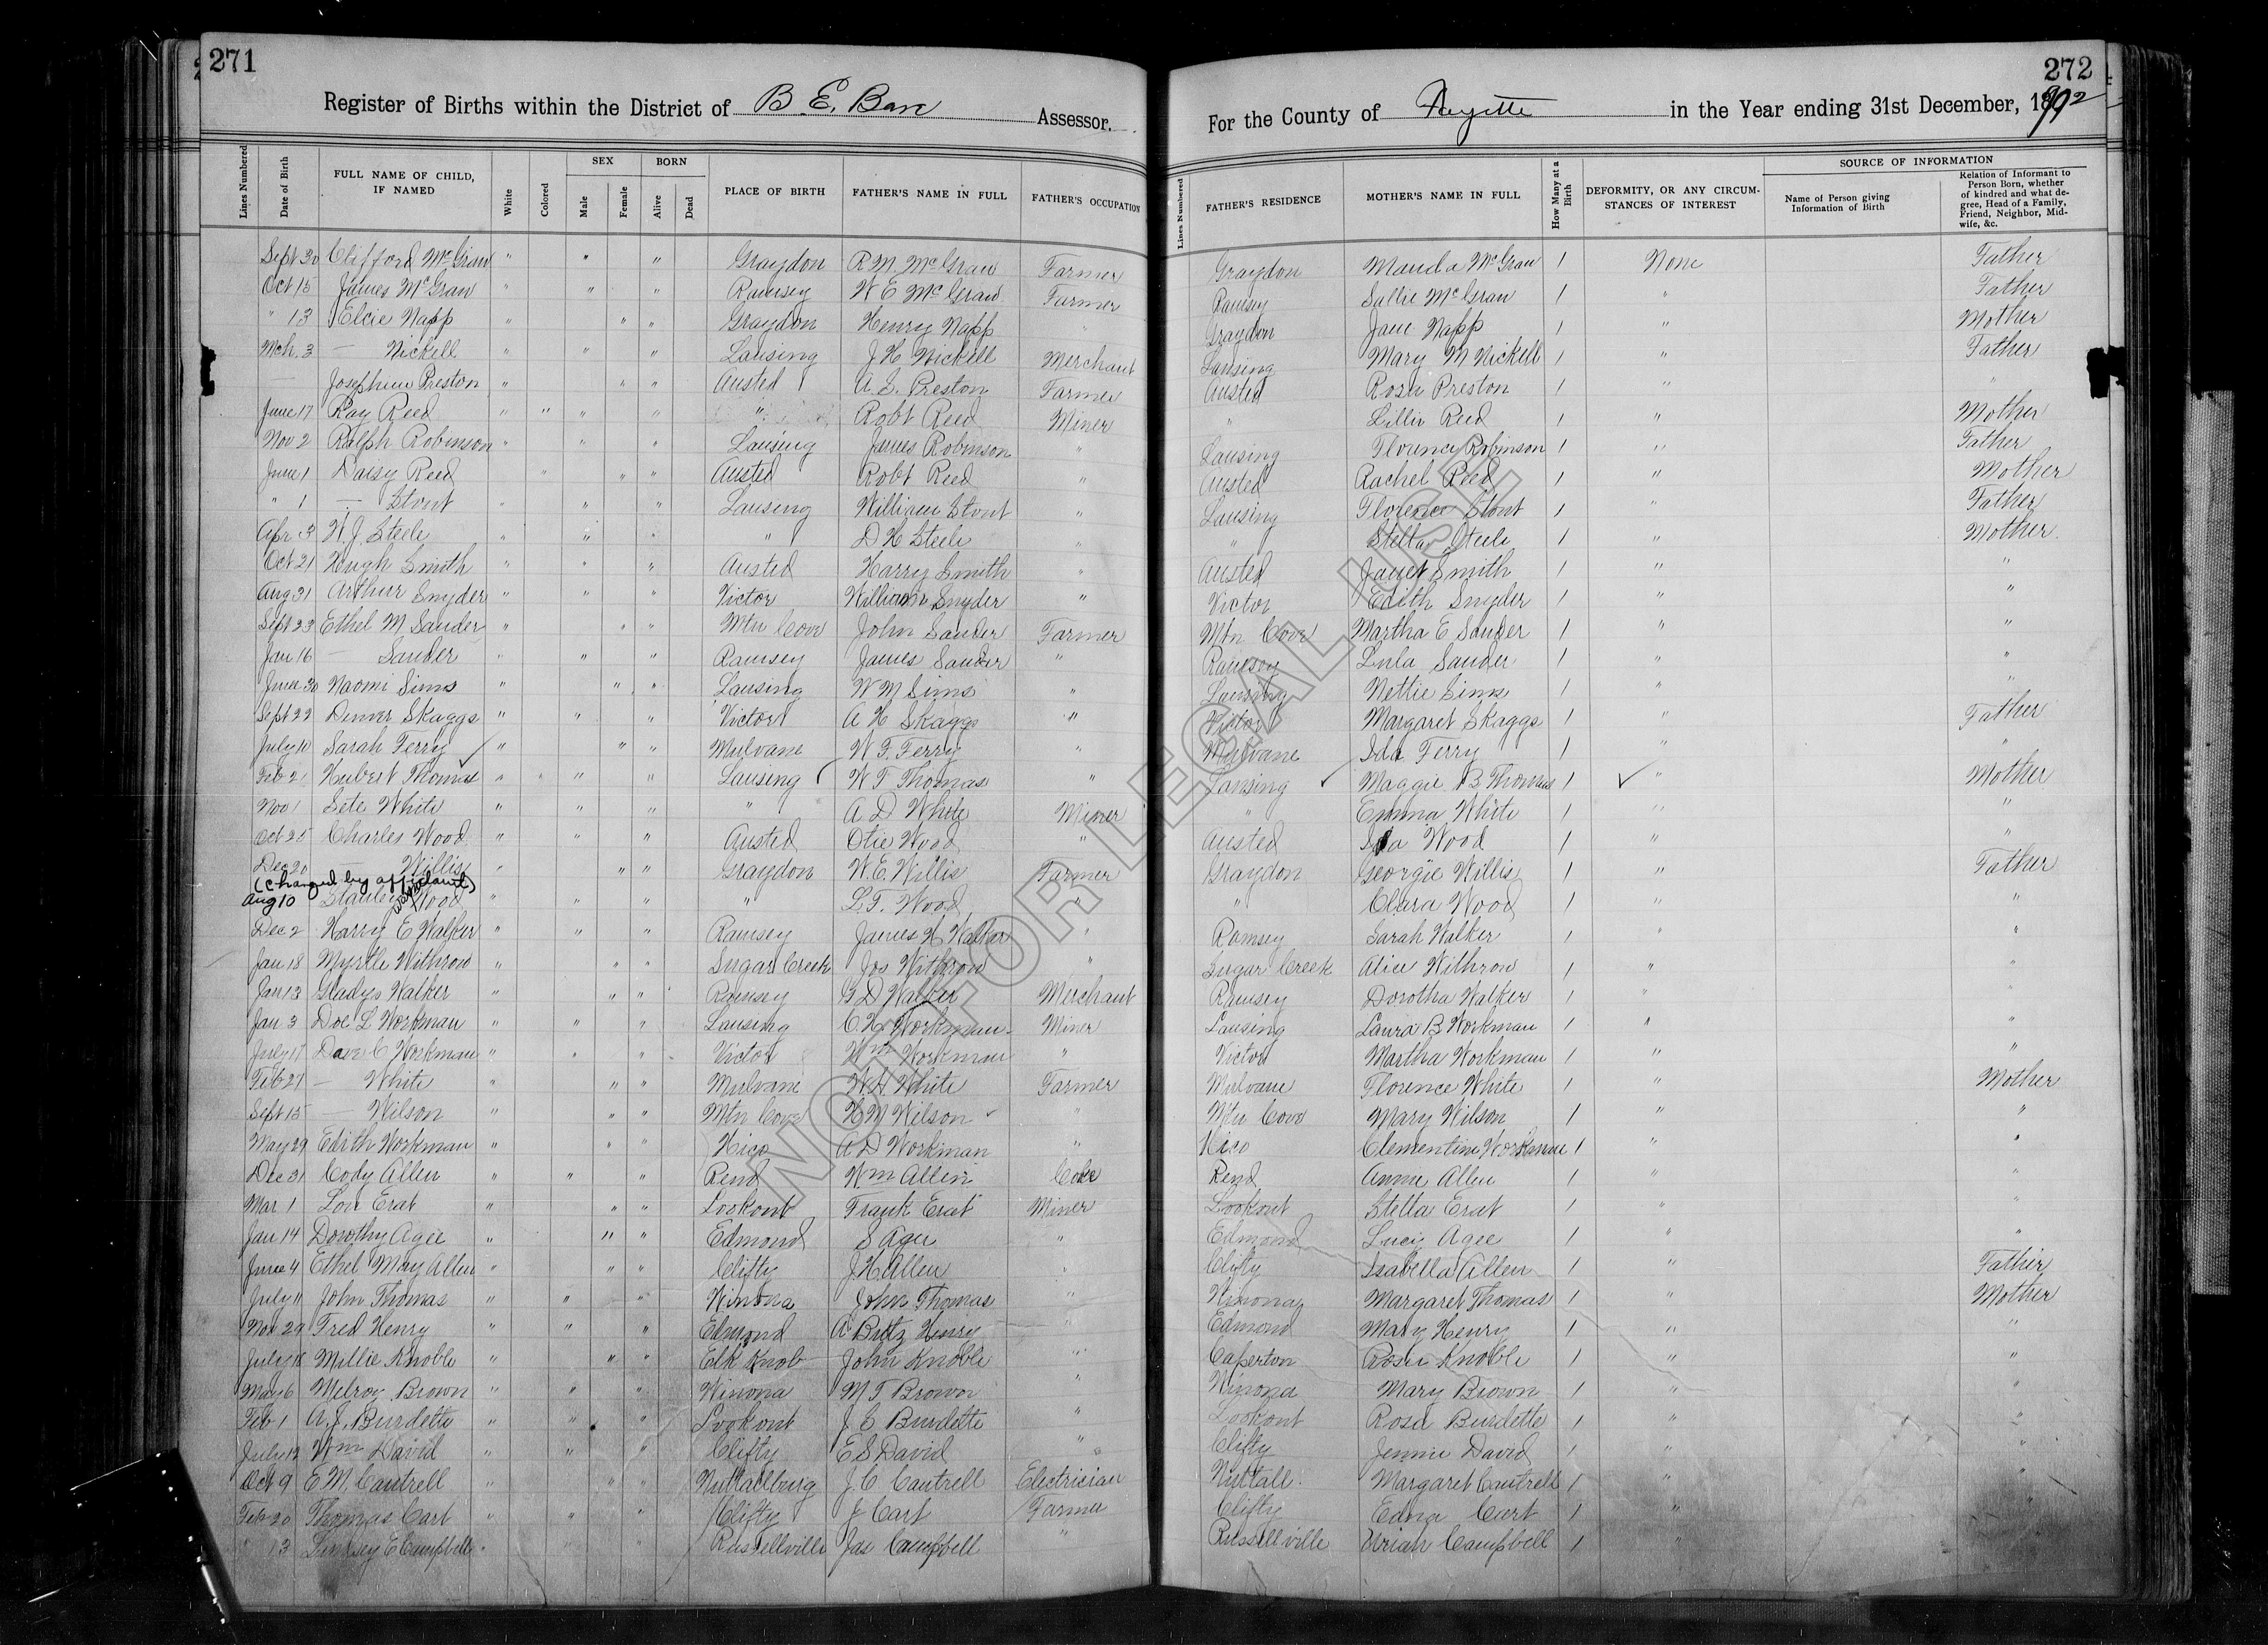 271
272
Register of Births within the District of B. E. Bare Assessor.
For the County of Fayette in the Year ending 31st December, 1902
Lines Numbered Date of Birth FULL NAME OF CHILD, IF NAMED White Colored SEX Male Female BORN Alive Dead PLACE OF BIRTH FATHER'S NAME IN FULL FATHER'S OCCUPATION
Lines Numbered FATHER'S RESIDENCE MOTHER'S NAME IN FULL How Many at a Birth DEFORMITY, OR ANY CIRCUMSTANCES OF INTEREST SOURCE OF INFORMATION Name of Person giving Information of Birth Relation of Informant to Person Born, whether of kindred and what degree, Head of a Family, Friend, Neighbor, Midwife, &c.
Sept 30 Clifford McGraw " " " Graydon R M McGraw Farmer Graydon Manda McGraw 1 None Father
Oct 15 James McGraw " " " Ramsey W E McGraw Farmer Ramsey Sallie McGraw 1 " Father
" 13 Elcie Napp " " " Graydon Henry Napp " Graydon Jane Napp 1 " Mother
Mch. 3 — Nickell " " " Lansing J H Nickell Merchant Lansing Mary M Nickell 1 " Father
— Josephine Preston " " " Ansted A. L. Preston Farmer Ansted Rosa Preston 1 " "
June 17 Ray Reed " " " " " Robt Reed Miner " Lillie Reed 1 " Mother
Nov 2 Ralph Robinson " " " Lansing James Robinson " Lansing Florence Robinson 1 " Father
June 1 Daisy Reed " " " Ansted Robt Reed " Ansted Rachel Reed 1 " Mother
" 1 — Stout " " " Lansing William Stout " Lansing Florence Stout 1 " Father
Apr 3 W. J. Steele " " " " D H Steele " " Stella Steele 1 " Mother
Oct 21 Hugh Smith " " " Ansted Harry Smith " Ansted Janet Smith 1 " "
Aug 31 Arthur Snyder " " " Victor William Snyder " Victor Edith Snyder 1 " "
Sept 23 Ethel M Sander " " " Mtn Cove John Sander Farmer Mtn Cove Martha E Sander 1 " "
Jan 16 — Sander " " " Ramsey James Sander " Ramsey Lula Sander 1 " "
June 30 Naomi Sims " " " Lansing W M Sims " Lansing Nettie Sims 1 " "
Sept 22 Denver Skaggs " " " Victor A H Skaggs " Victor Margaret Skaggs 1 " Father
July 10 Sarah Terry " " " Mulvane W. F. Terry " Mulvane Ida Terry 1 " "
Feb 2 Hubert Thomas " " " " Lansing W T Thomas " Lansing Maggie B Thomas 1 " Mother
Nov 1 Sete White " " " " A D White Miner " Emma White 1 " "
Oct 25 Charles Wood " " " Ansted Otie Wood " Ansted Ida Wood 1 " "
Dec 20 — Willis " " " Graydon W. E. Willis Farmer Graydon Georgie Willis 1 " Father
(Changed by affidavit)
Aug 10 Stanley Wood " " " " L. F. Wood " " Clara Wood 1 " "
Dec 2 Harry E Walker " " " Ramsey James H Walker " Ramsey Sarah Walker 1 " "
Jan 18 Myrtle Withrow " " " Sugar Creek Jos Withrow " Sugar Creek Alice Withrow 1 " "
Jan 13 Gladys Walker " " " Ramsey G D Walker Merchant Ramsey Dorotha Walker 1 " "
Jan 3 Doc L Workman " " " Lansing C. H. Workman Miner Lansing Laura B Workman 1 " "
July 17 Dave C Workman " " " Victor Wm Workman " Victor Martha Workman 1 " "
Feb 27 — White " " " Mulvane W. H White Farmer Mulvane Florence White 1 " Mother
Sept 15 — Wilson " " " Mtn Cove H M Wilson " Mtn Cove Mary Wilson 1 " "
May 29 Edith Workman " " " Hico A D Workman " Hico Clementine Workman 1 " "
Dec 31 Cody Allen " " " Rend Wm Allen Coke Rend Annie Allen 1 " "
Mar 1 Lou Erat " " " Lookout Frank Erat Miner Lookout Stella Erat 1 " "
Jan 14 Dorothy Agee " " " Edmond S Agee " Edmond Lucy Agee 1 " "
June 4 Ethel May Allen " " " Clifty J H Allen " Clifty Isabella Allen 1 " Father
July 11 John Thomas " " " Winona John Thomas " Winona Margaret Thomas 1 " Mother
Nov 29 Fred Henry " " " Edmond A Britz Henry " Edmond Mary Henry 1 " "
July 18 Millie Knoble " " " Elk Knob John Knoble " Caperton Rosie Knoble 1 " "
May 6 Melroy Brown " " " Winona M T Brown " Winona Mary Brown 1 " "
Feb 1 A. J. Burdette " " " Lookout J. C Burdette " Lookout Rosa Burdette 1 " "
July 12 Wm David " " " Clifty E S David " Clifty Jennie David 1 " "
Oct 9 E M. Cantrell " " " Nuttallburg J. C Cantrell Electrician Nuttall Margaret Cantrell 1 " "
Feb 20 Thomas Cart " " " Clifty J Cart Farmer Clifty Edna Cart 1 " "
" 13 Lindsey E Campbell " " " Russellville Jas Campbell " Russellville Uriah Campbell 1 "
NOT FOR LEGAL USE